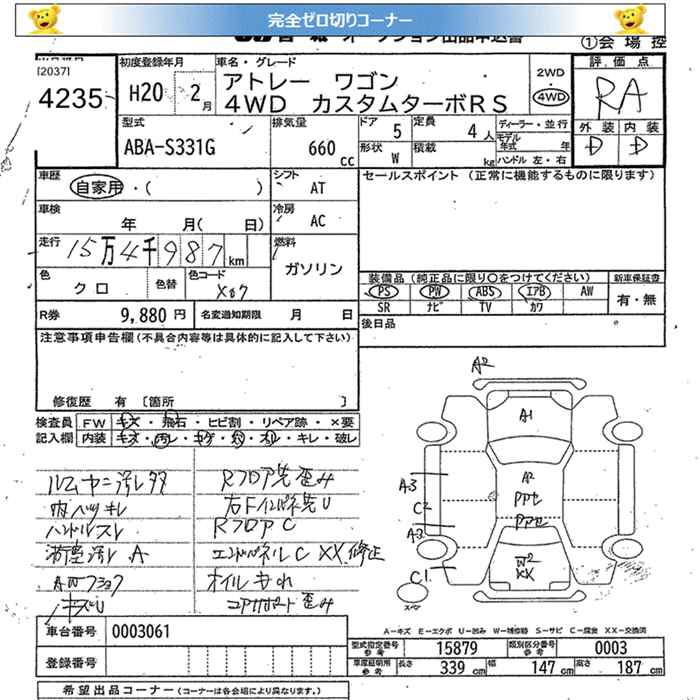 完全ゼロ切りコーナー
①会場控
[2037]
4235
初度登録年月
H20 2月
車名・グレード
アトレー ワゴン
4WD カスタムターボRS
2WD
4WD
評価点
RA
外装 内装
D D
型式
ABA-S331G
排気量
660 cc
ドア 5
定員 4人
形状 W
積載 kg
ディーラー・並行
モデル年式 年
ハンドル 左・右
車歴
自家用・( )
シフト AT
セールスポイント (正常に機能するものに限ります)
車検
年 月( 日)
冷房 AC
走行 15万4千987km
燃料
ガソリン
色 クロ
色替
色コード X07
装備品(純正品に限り○をつけてください)
新車保証書
PS PW ABS エアB AW
有・無
SR ナビ TV カワ
R券 9,880円
名変通知期限 月 日
後日品
注意事項申告欄(不具合内容等は具体的に記入して下さい)
修復歴 有 〔箇所 〕
検査員記入欄
FW キズ・飛石・ヒビ割・リペア跡・×要
内装 キズ・汚レ・コゲ・穴・スレ・キレ・破レ
A2
A1
A3
C2
A2
C1
W2
XX
スペア
ハンドルスレ
Rフロア C
エンドパネル C XX 修正
オイルもれ
A-キズ E-エクボ U-凹み W-補修跡 S-サビ C-腐食 XX-交換済
車台番号 0003061
登録番号
型式指定番号参考 15879
類別区分番号参考 0003
車庫証明用参考 長さ 339cm 幅 147cm 高さ 187cm
希望出品コーナー(コーナーは各会場により異なります。)